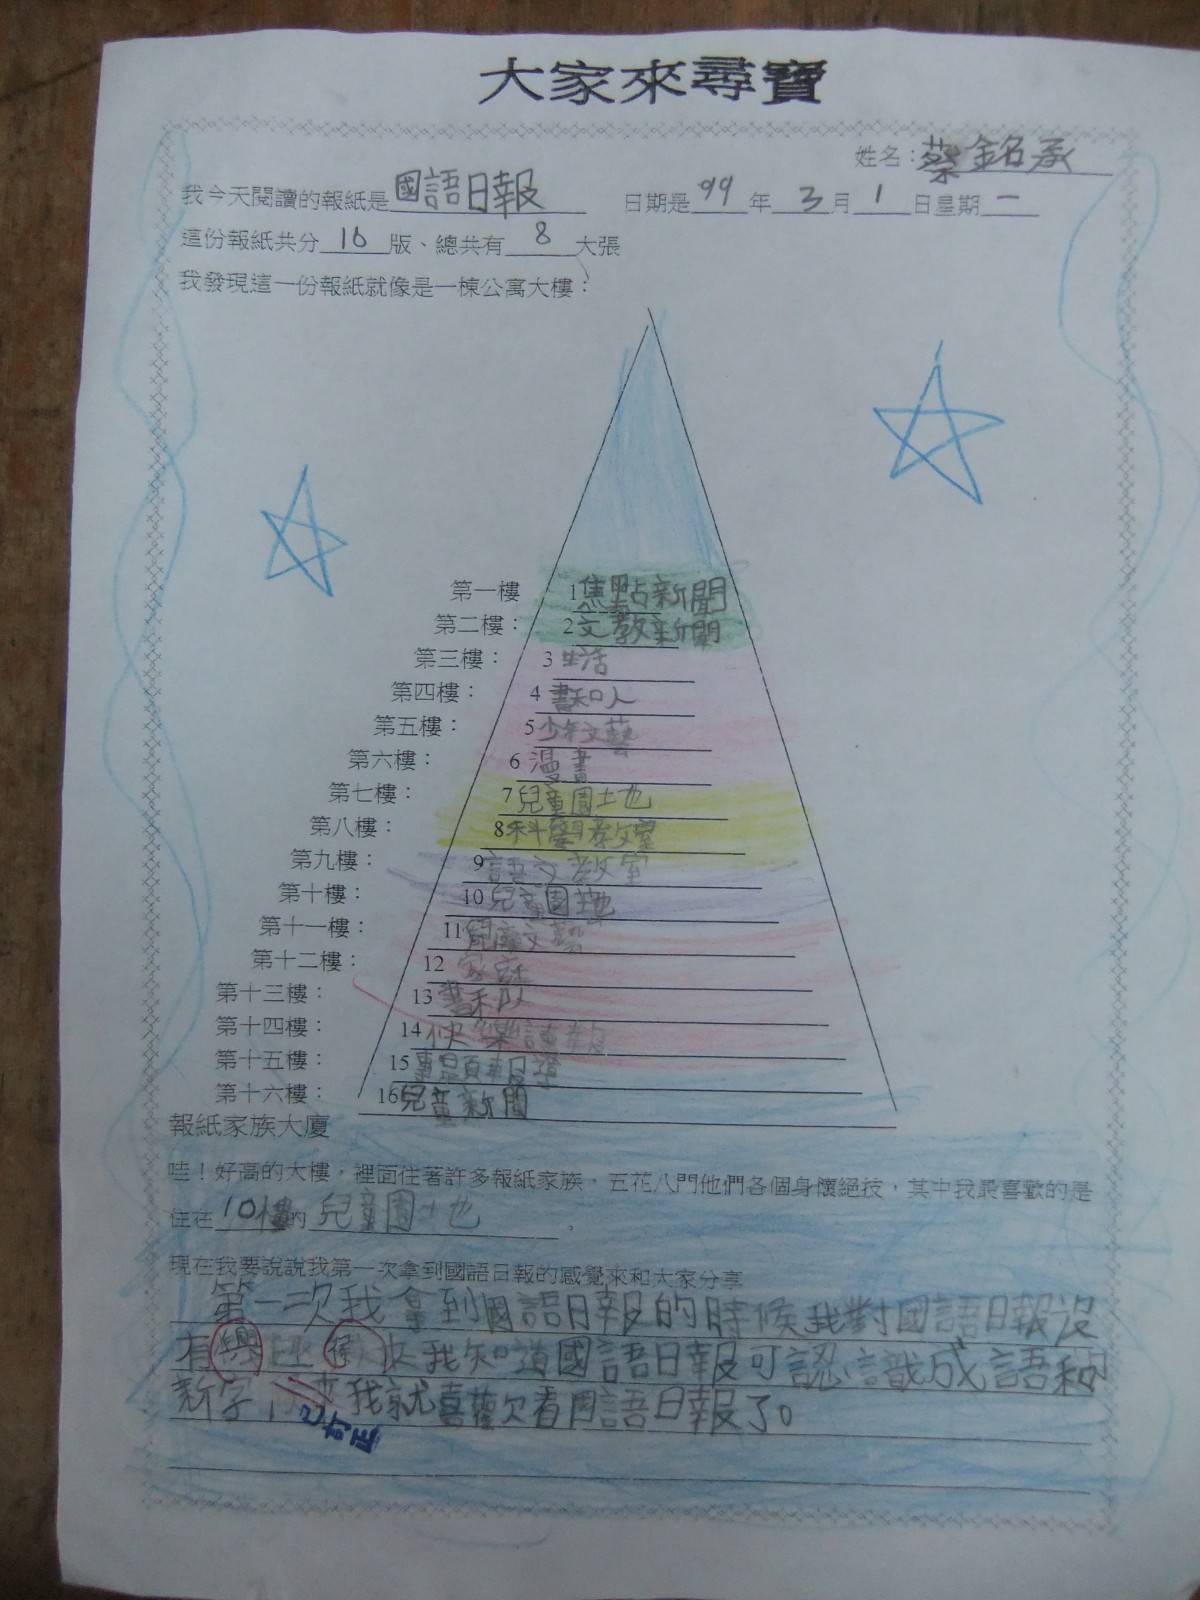 大家來尋寶
姓名：蔡銘承
我今天閱讀的報紙是國語日報 日期是99年3月1日星期一
這份報紙共分16版、總共有8大張
我發現這一份報紙就像是一棟公寓大樓：
第一樓 1焦點新聞
第二樓： 2文教新聞
第三樓： 3生活
第四樓： 4書和人
第五樓： 5少年文藝
第六樓： 6漫畫
第七樓： 7兒童園地
第八樓： 8科學教室
第九樓： 9語文教室
第十樓： 10兒童園地
第十一樓： 11兒童文藝
第十二樓： 12家庭
第十三樓： 13書和人
第十四樓： 14快樂讀報
第十五樓： 15
第十六樓： 16兒童新聞
報紙家族大廈
哇！好高的大樓，裡面住著許多報紙家族，五花八門他們各個身懷絕技，其中我最喜歡的是
住在10樓的兒童園地
現在我要說說我第一次拿到國語日報的感覺來和大家分享
第一次我拿到國語日報的時候我對國語日報沒
有興趣後來我知道國語日報可認識成語和
新字，來我就喜歡看國語日報了。
已訂正